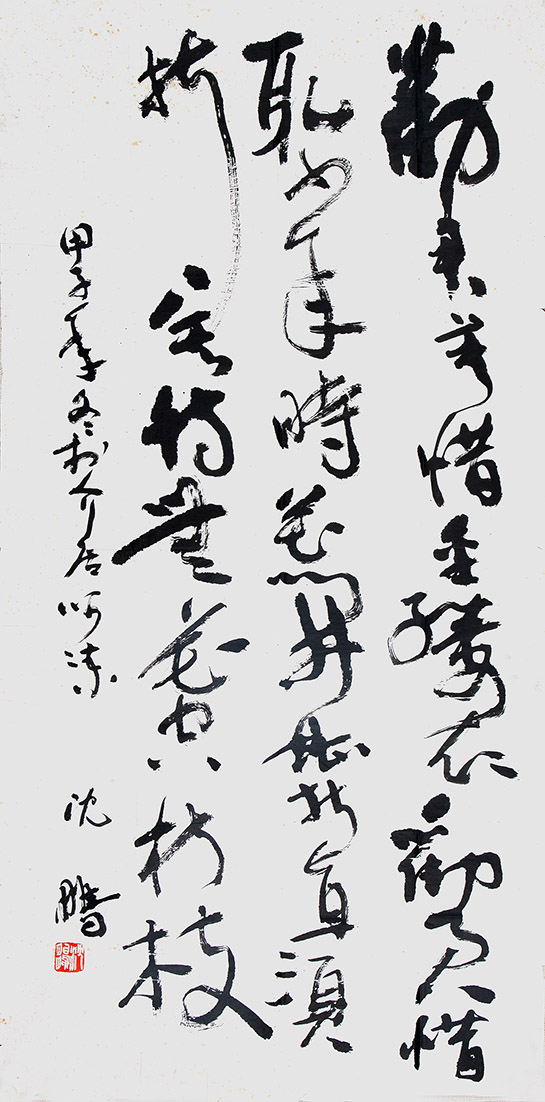 勸君莫惜金縷衣勸君惜
取少年時花開堪折直須
折莫待無花空折枝
甲子年冬於介居呵凍
沈鵬